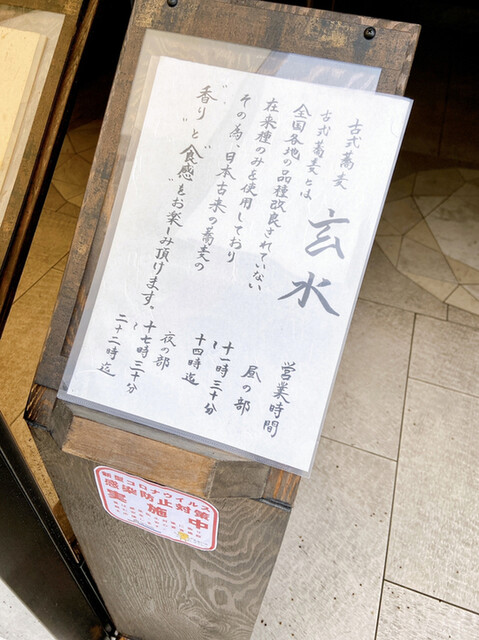 古式蕎麦
玄水
古式蕎麦とは
全国各地の品種改良されていない
在来種のみを使用しており
その為、日本古来の蕎麦の
”香り”と”食感”をお楽しみ頂けます。
営業時間
昼の部
十一時三十分
〜
十四時迄
夜の部
十七時三十分
〜
二十二時迄
新型コロナウイルス
感染防止対策
実施中